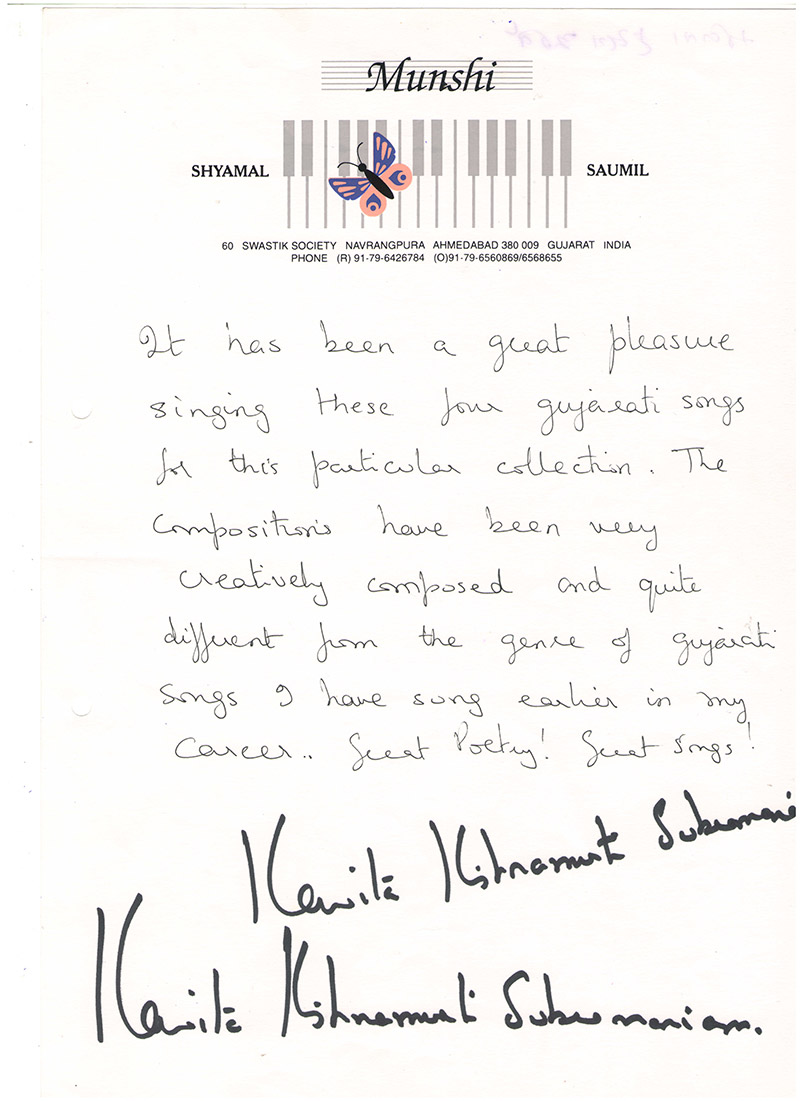 Munshi
SHYAMAL
SAUMIL
60 SWASTIK SOCIETY NAVRANGPURA AHMEDABAD 380 009 GUJARAT INDIA
PHONE (R) 91-79-6426784 (O)91-79-6560869/6568655
It has been a great pleasure
singing these four gujarati songs
for this particular collection. The
compositions have been very
creatively composed and quite
different from the genre of gujarati
songs I have sung earlier in my
career.. Great Poetry! Great songs!
Kavita Krishnamurti Subramani
Kavita Krishnamurti Subramaniam.